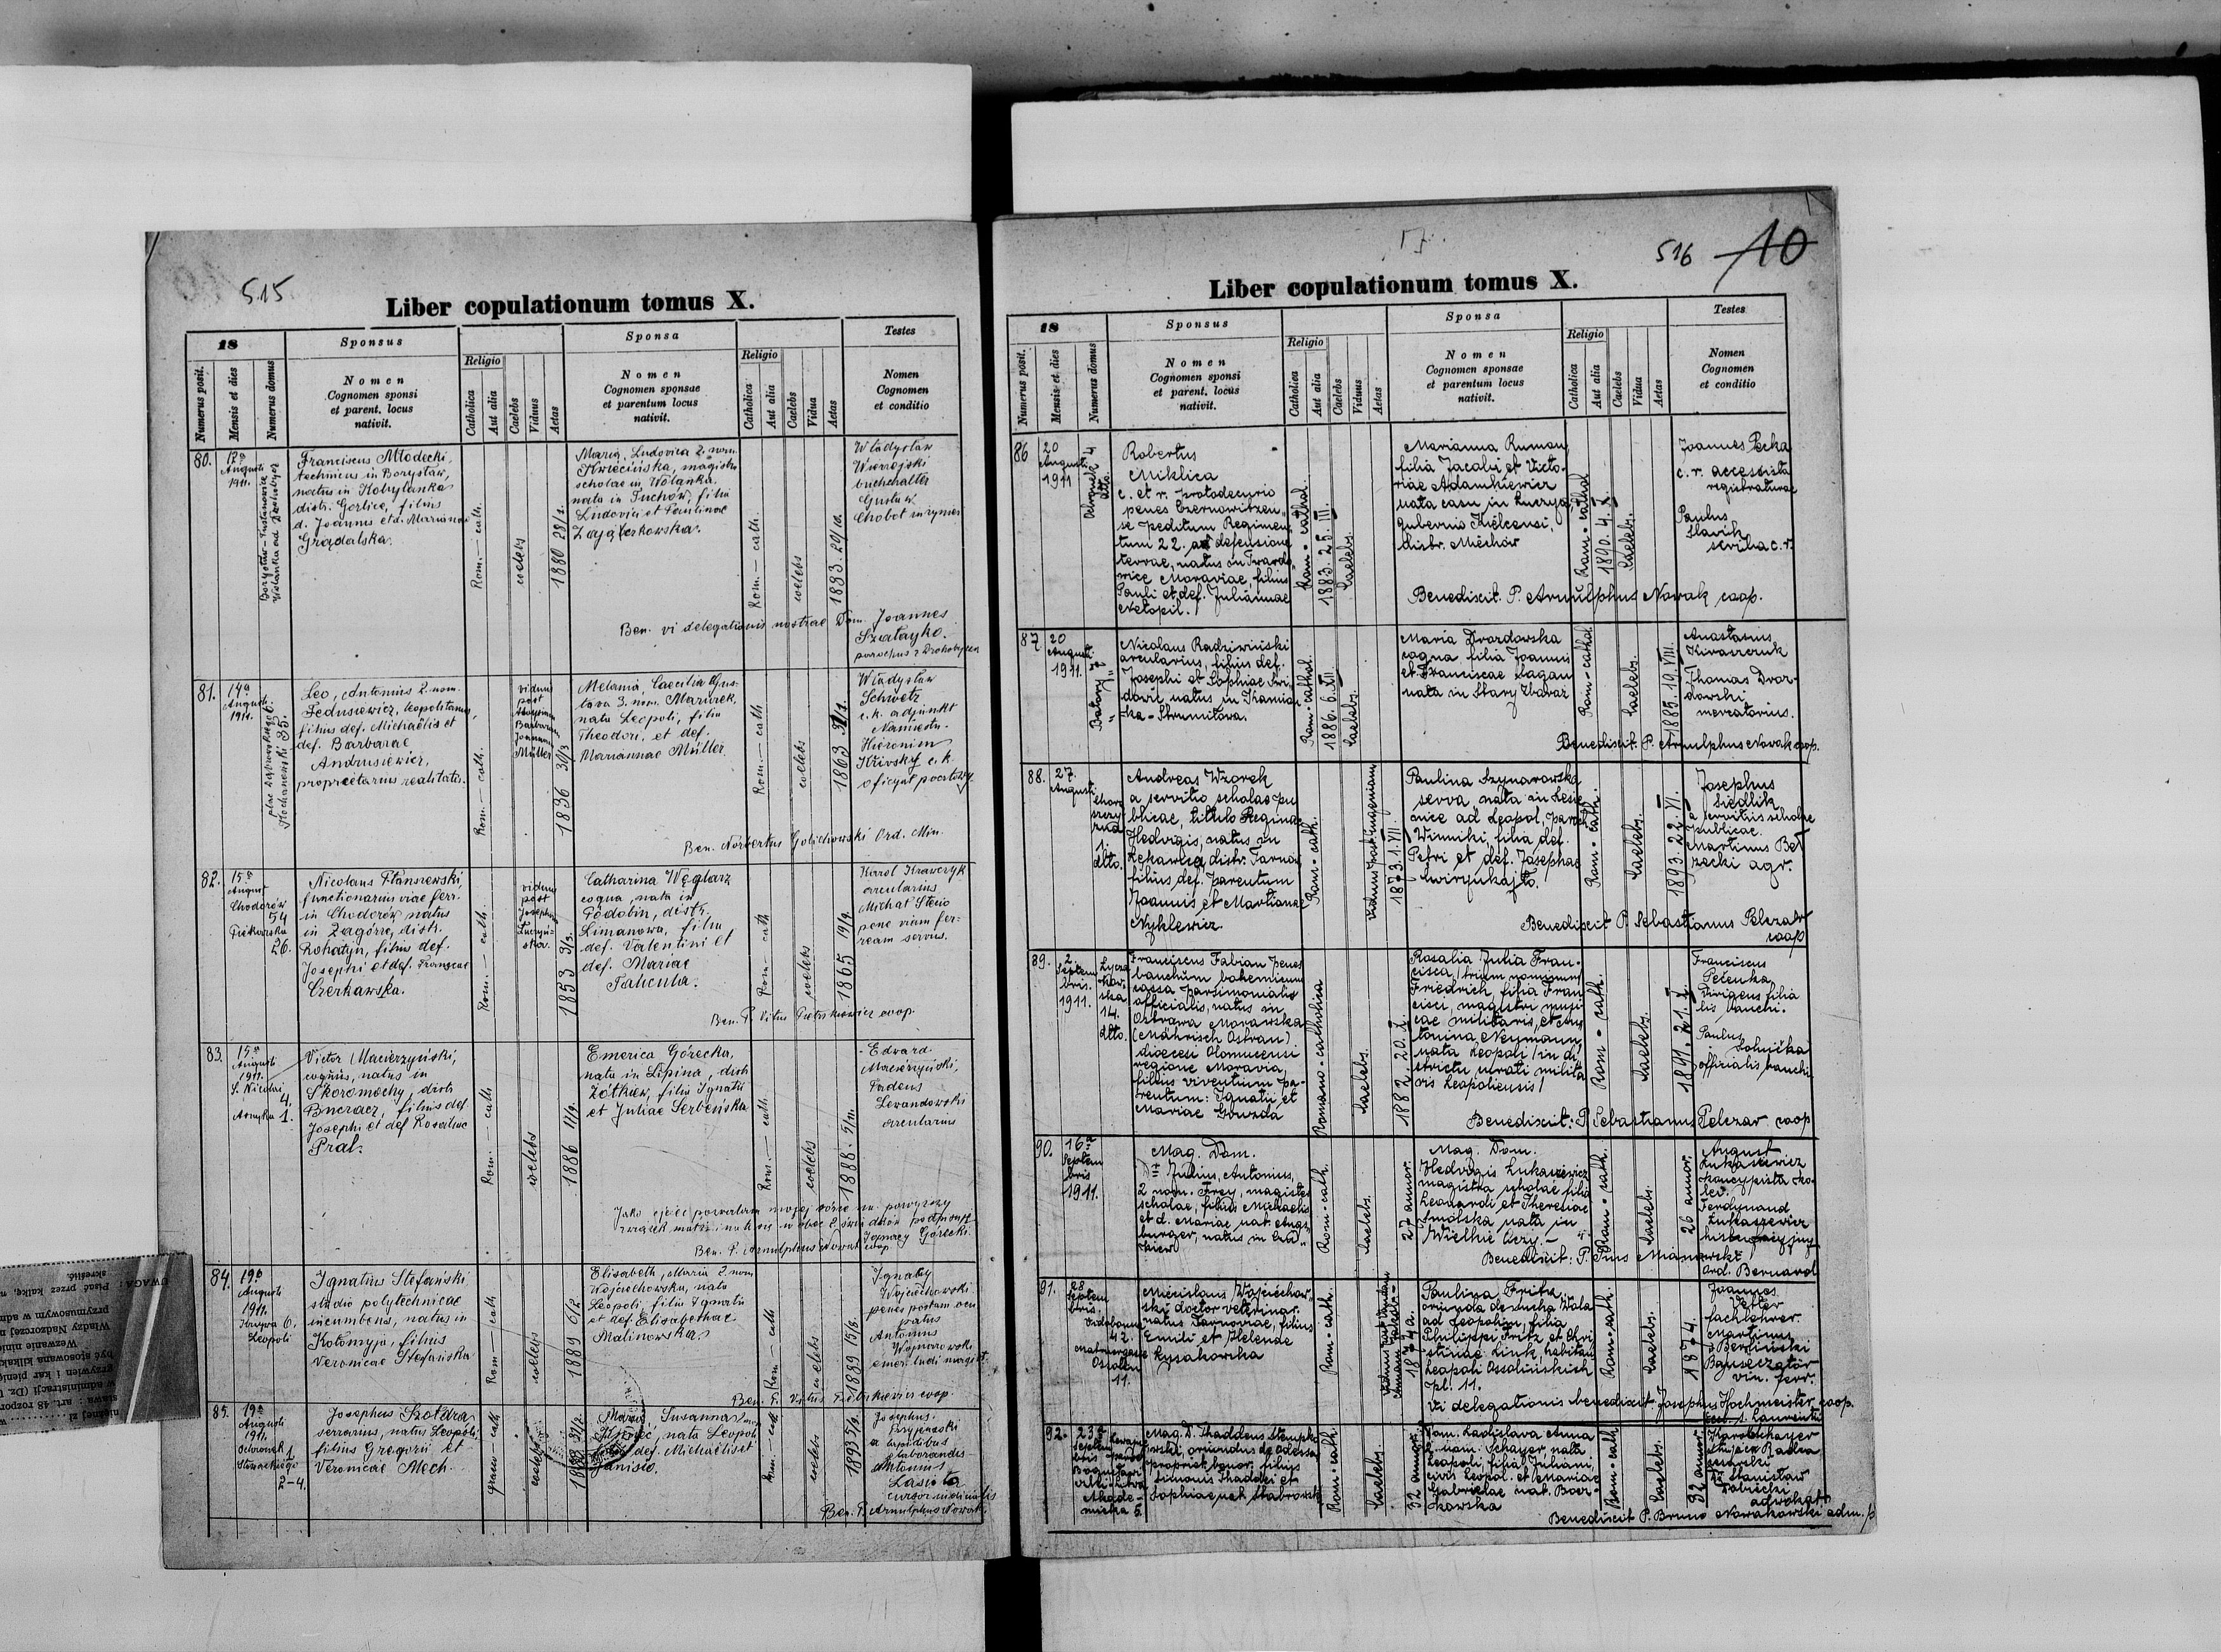 515
Liber copulationum tomus X.
18
Sponsus
Sponsa
Testes
Numerus posit.
Mensis et dies
Numerus domus
Nomen
Cognomen sponsi
et parent. locus
nativit.
Religio
Catholica
Aut alia
Caelebs
Viduus
Aetas
Nomen
Cognomen sponsae
et parentum locus
nativit.
Religio
Catholica
Aut alia
Caelebs
Vidua
Aetas
Nomen
Cognomen
et conditio
80.
17a
Augusti
1911.
Franciscus Młodecki,
technicus in Borysław,
natus in Kobylanka
distr. Gorlice, filius
d. Joannis et d. Marianae
Grądalska.
Rom. — cath.
coelebs
1880 28/1.
Maria, Ludovica 2. nom.
Kwiecińska, magistra
scholae in Wolanka,
nata in Tuchów, filia
Ludovici et Paulinae
Rom. — cath.
coelebs
Władysław
buchchalter
Gustaw
Chobot inżynier
Ben. vi delegationis nostrae Dom. Joannes
Szałayko.
parochus
81.
14a
Augusti
1911.
Kochanowski 35.
Leo, Antonius 2. nom.
Fedusiewicz, leopolitanus,
filius def. Michaëlis et
def. Barbarae
Andrusiewicz,
proprietarius realitatis.
Rom. — cath.
viduus
post
Barbaram
Müller
1836 30/3
Melania, Caecilia Gus-
tava 3. nom. Mazurek,
nata Leopoli, filia
Theodori, et def.
Mariannae Müller
Rom. — cath
coelebs
Władysław
Schwetz
c.k. adjunkt
Namiestn.
Hieronim
Křivský c.k.
oficyał pocztowy.
Ben. Norbertus Golichowski Ord. Min.
82.
15a
August
Chodorów
54
Piekarska
26.
Nicolaus Ptaszewski,
functionarius viae ferr.
in Chodorów natus
in Zagórze, distr.
Rohatyn, filius def.
Josephi et def. Franciscae
Czerkawska.
Rom. — cath.
viduus
post
1853 3/3.
Catharina Węglarz
coqua, nata in
Podobin, distr.
Limanowa, filia
def. Valentini et
def. Mariae
Faticula.
Rom — cath
coelebs
1865 19/9.
Karol Krawczyk
arcularius
Michał Steiö
pene viam fer-
ream servus.
Ben. P. Vitus Pietrskiewicz coop.
83.
15a
Augusti
1911.
S. Nicolai
4.
Asnyka 1.
Victor Macierzyński,
coquus, natus in
Skoromochy, distr.
filius def.
Josephi et def Rosaliae
Prat.
Rom. — cath
coelebs
1886 11/9.
Emerica Górecka,
nata in Lipina, distr.
Żółkiew, filia Ignatii
et Juliae Serbeńska
Rom. — cath.
coelebs
1888. 5/11.
Edward
Macierzyński,
Tadeus
Lewandowski
arcularius
Jako ojciec pozwalam mojej córce na powyższy
Ignacy Górecki.
Ben. P. Arnulphus Nowak coop
84.
19a
Augusti
1911.
Krzywa 6.
Leopoli
Ignatius Stefański
studio polytechnicae
incumbens, natus in
Kołomyja, filius
Veronicae Stefańska
Rom — cath
coelebs
1889 6/2.
Elisabeth, Maria 2. nom
Wojciechowska, nata
Leopoli, filia Ignatii
et def. Elisabethae
Malinowska
Rom — cath
coelebs
1889 15/8.
Ignacy
Wojciechowski
penes postam occu
patus
Antonius
Wojnarowski
emer. ludi magist.
Ben. P. Vitus Pietrskiewicz coop.
85.
19a
Augusti
1911.
Ochronek 1
Słowackiego
2-4.
Josephus Szołdra
serrarius, natus Leopoli,
filius Gregorii et
Veronicae Mech.
graeco — cath
coelebs
Maria, Susanna
nata Leopoli
def. Michaëlis et
Rom. — cath
coelebs
1893 5/8.
Josephus
a lapidibus
elaborandis
Antonius
Lasota
Ben. P. Arnulphus Nowak.
17.
516
10
Liber copulationum tomus X.
18
Sponsus
Sponsa
Testes
Numerus posit.
Mensis et dies
Numerus domus
Nomen
Cognomen sponsi
et parent. locus
nativit.
Religio
Catholica
Aut alia
Caelebs
Viduus
Aetas
Nomen
Cognomen sponsae
et parentum locus
nativit.
Religio
Catholica
Aut alia
Caelebs
Vidua
Aetas
Nomen
Cognomen
et conditio
86
20
Augusti
1911
Ochronek 4
dtto.
Robertus
Miklica
c. et r. protodecurio
penes Czernowitzen-
se peditum Regimen
tum 22. ad defensionem
terrae, natus in
Moraviae, filius
Pauli et def. Julianae
Netopil.
Rom-cathol.
1883. 25. III.
Caelebs.
Marianna Ruman,
filia Jacobi et Victo-
riae Adamkiewicz
nata casu in
gubernio Kielcensi,
distr. Miechów
Rom-cathol
1890. 4. X.
Caelebs.
Joannes Pecka
c. r. accesista
registraturae
Paulus
Slavik
scriba c. r.
Benedixit. P. Arnulphus Nowak coop.
87
20
Augusti
1911.
Batory
Nicolaus Radziwiński
arcularius, filius def.
Josephi et Sophiae
natus in Kamion-
ka-Strumiłowa.
Rom-cathol.
1886. 6. XII
Caelebs.
Maria Dvordowska
coqua filia Joannis
et Franciscae Łagan
nata in Stary Zbaraż
Rom-cathol
Caelebs.
1885. 19. VIII.
Anastasius
Thomas Dvor-
dowski
mercatorius.
Benedixit: P. Arnulphus Nowak coop.
88.
27.
Augusti
1.
dtto.
Andreas Wzorek
a servitio scholae pu
blicae, tituli Reginae
Hedvigis, natus in
distr. Tarnow
filius def. parentum
Joannis et Martianae
Nyklewicz.
Rom-cath.
1873. 1. VII.
Paulina Szynarowska
serva nata in Lesie
nice ad Leopol, paroch
Winniki, filia def.
Petri et def. Josephae
Rom-cath.
Caelebs.
1893. 22. VI.
Josephus
Siedlik
a servitiis scholae
publicae.
Martinus Beł
zecki agr.
Benedixit P. Sebastianus Pelczar
coop
89.
2.
Septem
bris.
1911.
Łycza
kow-
ska
14.
dtto.
Franciscus Fabian penes
banchum bohemicum
cassa parsimonialis
officialis, natus in
Ostrawa Morawska
(Mährisch Ostrau)
dioecesi Olomucensi
regione Moravia,
filius viventium pa-
rentum: Ignatii et
Mariae Gowzda
Romano-catholica
Caelebs.
1882. 20. X.
Rosalia Julia Fran-
cisca (trium nominum)
Friedrich, filia Fran
cisci, magistri musi
cae militaris, et An
tonina Neumann,
nata Leopoli (in di
strictu curati milita
ris Leopoliensis)
Rom-cath.
Caelebs.
1891. 21. X.
Franciscus
Pečenka,
dirigens filia
lis banchi.
Paulus
officialis banchi
Benedixit: P. Sebastianus Pelczar coop
90.
16a
Septem
bris
1911.
Mag. Dom.
Julius, Antonius,
2 nom. Frey, magister
scholae, filius Michaelis
et d. Mariae nat. Augs-
burger, natus in
Rom-cath.
Caelebs.
27 annor.
Mag. Dom.
Hedvigis Łukasiewicz
magistra scholae filia
Leonardi et Theresiae
Smólska nata in
Wielkie Oczy.
Rom-cath.
Caelebs.
26 annor.
August
Łukasiewicz
koncypista ko-
lei.
Ferdynand
Łukasiewicz
Benedixit: P. Pius Manowski,
Ord. Bernard
91.
28
Septem
bris.
Vindobonae
42.
Ossoliń
11.
Miecislaus Wojciechow-
ski doctor veterinar.
natus Tarnoviae, filius
Emili et Helenae
Łysakowska
Rom-cath.
1874 a.
Paulina Fritz,
oriunda de Sucha Wola
ad Leopolim, filia
Philippi Fritz et Chri
stinae Link, habitans
Leopoli Ossolińskich
pl. 11.
Rom-cath.
Caelebs.
1874.
Joannes
Vetter
fachlehrer.
Martinus
Berliński
vin. ferr.
Vi delegationis benedixit Josephus Hochmeister coop.
eccl. s. Laurentii
92.
23a
Septem
bris
Akade-
micka 5.
Mag. D. Thaddeus Stempko
wski, oriundus de Odessa
propriet. bonor. filius
Simonis Thaddei et
Sophiae nat Stabrowska
Rom-cath.
Caelebs.
32 annor.
Dom. Ladislava Anna
2 nom. Schayer, nata
Leopoli, filia Juliani,
civis Leopol. et Mariae
Gabrielae nat. Bocz-
kowska
Rom-cath
Caelebs.
32 annor.
Karol Schayer
Dr Stanisław
adwokat
Benedixit P. Bruno Nowakowski adm. p
UWAGA:
Pisać przez kalkę,
skreślić.